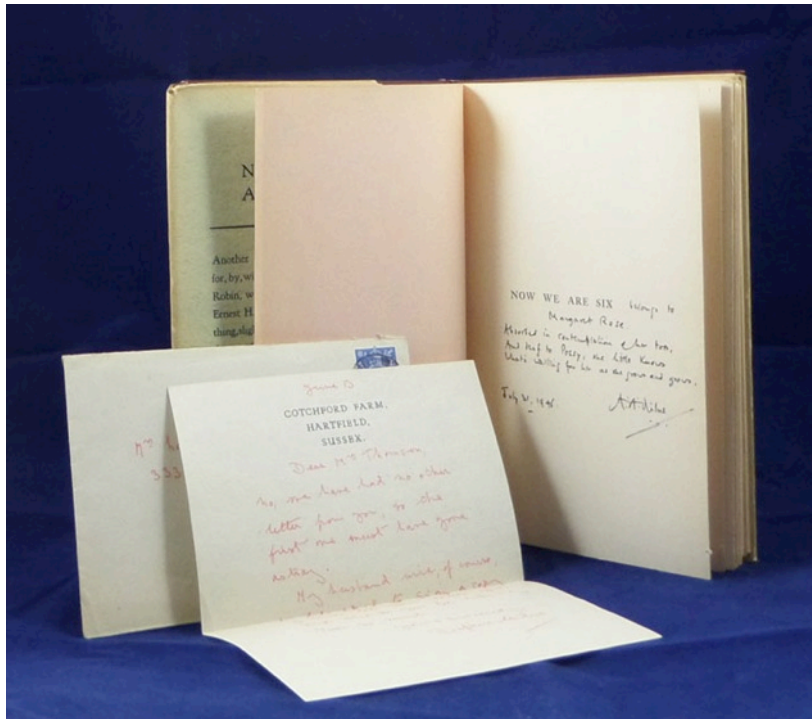 N
A
Another
for, by, wi
Robin, w
Ernest H.
thing, slig
NOW WE ARE SIX belongs to
Margaret Rose.
Absorbed in contemplation of her toes,
And deaf to Posey, she little knows
What's waiting for her as she grows and grows.
July 21, 1946
A.A. Milne
333
June 13
COTCHFORD FARM,
HARTFIELD,
SUSSEX.
Dear Mrs Thomson,
No, we have had no other
letter from you, so the
first one must have gone
astray.
My husband will, of course,
to sign a copy